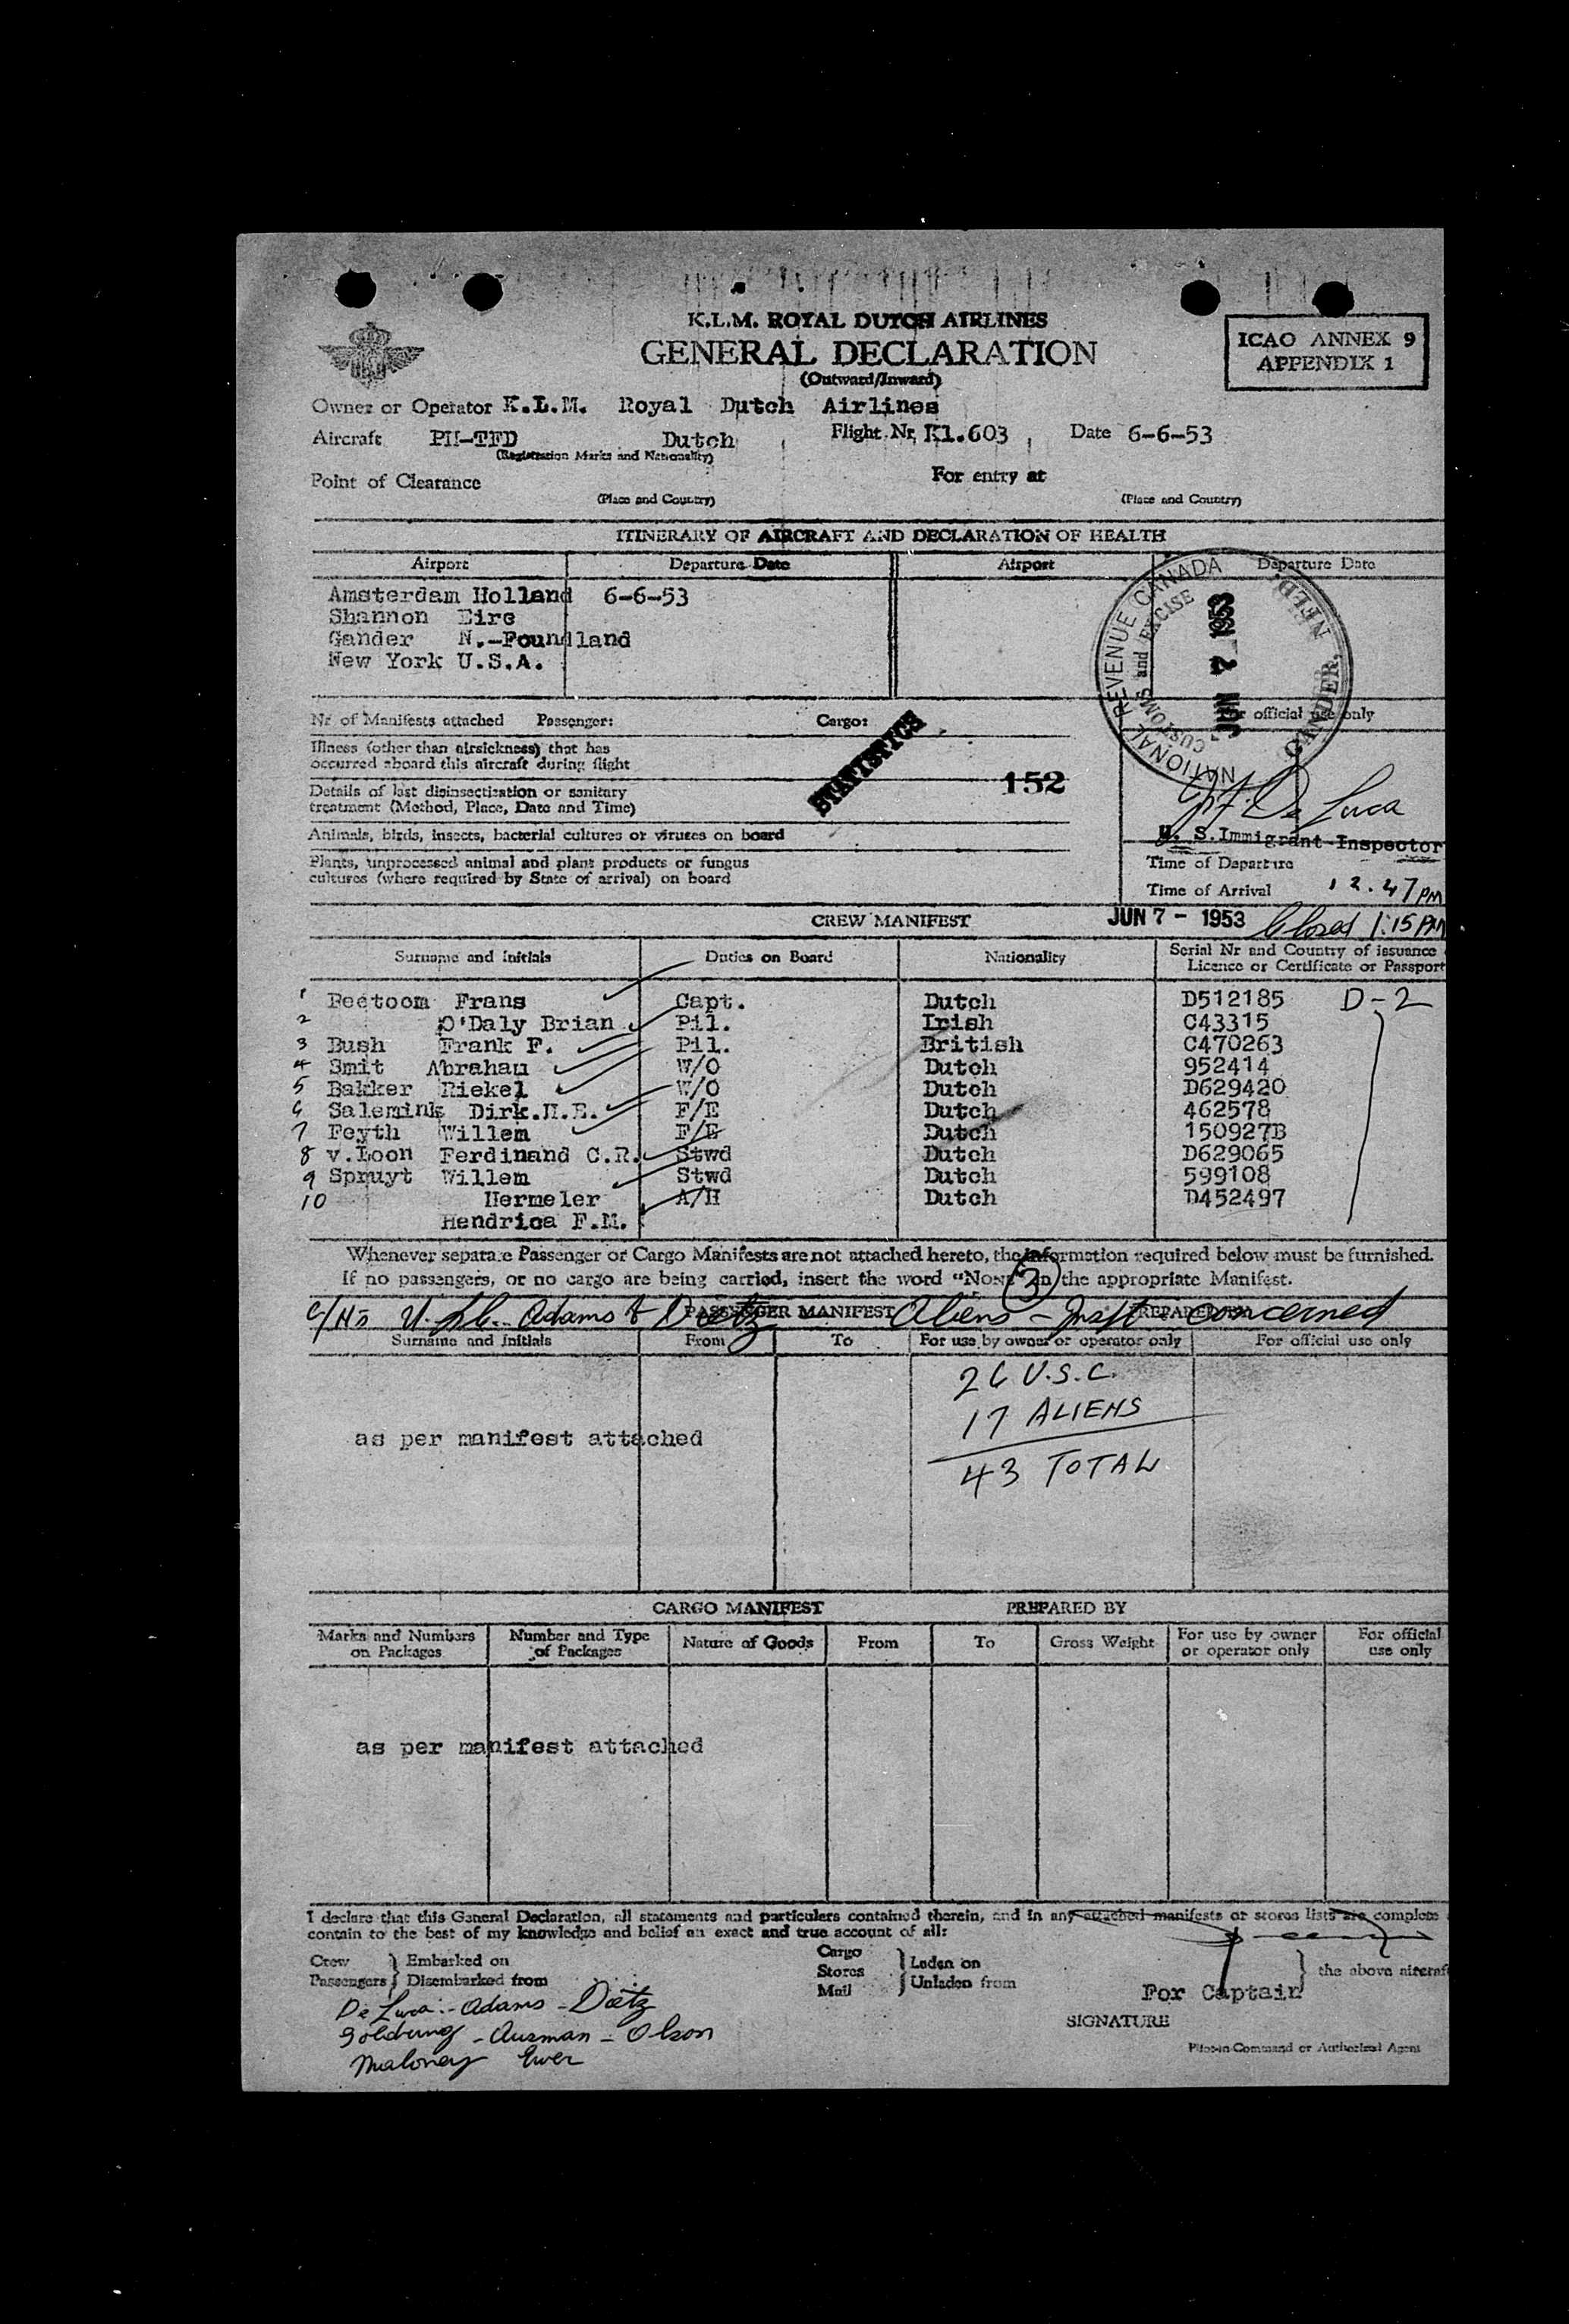 K.L.M. ROYAL DUTCH AIRLINES
GENERAL DECLARATION
(Outward/Inward)
ICAO ANNEX 9
APPENDIX 1
Owner or Operator K.L.M. Royal Dutch Airlines
Aircraft PH-TFD Dutch Flight Nr. Kl.603 Date 6-6-53
(Registration Marks and Nationality)
Point of Clearance For entry at
(Place and Country) (Place and Country)
ITINERARY OF AIRCRAFT AND DECLARATION OF HEALTH
Airport Departure Date Airport Departure Date
Amsterdam Holland 6-6-53
Shannon Eire
Gander N.-Foundland
New York U.S.A.
NATIONAL REVENUE CANADA
CUSTOMS and EXCISE
JUN 7 1953
GANDER, NFLD.
Nr of Manifests attached Passenger: Cargo: For official use only
Illness (other than airsickness) that has
occurred aboard this aircraft during flight
STATISTICS
152
Details of last disinsectization or sanitary
treatment (Method, Place, Date and Time)
De Luca
Animals, birds, insects, bacterial cultures or viruses on board
U. S. Immigrant Inspector
Plants, unprocessed animal and plant products or fungus
cultures (where required by State of arrival) on board
Time of Departure
Time of Arrival 12.47 PM
CREW MANIFEST JUN 7 - 1953 Closed 1:15 PM
Surname and Initials Duties on Board Nationality Serial Nr and Country of issuance
Licence or Certificate or Passport
1 Beetoom Frans Capt. Dutch D512185 D-2
2 O'Daly Brian Pil. Irish C43315
3 Bush Frank F. Pil. British C470263
4 Smit Abraham W/O Dutch 952414
5 Bakker Riekel W/O Dutch D629420
6 Salemink Dirk.H.E. F/E Dutch 462578
7 Feyth Willem F/E Dutch 150927B
8 v.Loon Ferdinand C.R. Stwd Dutch D629065
9 Spruyt Willem Stwd Dutch 599108
10 Hermeler A/H Dutch D452497
Hendrica F.M.
Whenever separate Passenger or Cargo Manifests are not attached hereto, the information required below must be furnished.
If no passengers, or no cargo are being carried, insert the word "NONE" in the appropriate Manifest.
3
PASSENGER MANIFEST PREPARED BY
Adams & Dietz Aliens - Inspt concerned
Surname and Initials From To For use by owner or operator only For official use only
26 U.S.C.
17 ALIENS
as per manifest attached
43 TOTAL
CARGO MANIFEST PREPARED BY
Marks and Numbers on Packages Number and Type of Packages Nature of Goods From To Gross Weight For use by owner or operator only For official use only
as per manifest attached
I declare that this General Declaration, all statements and particulars contained therein, and in any attached manifests or stores lists are complete
contain to the best of my knowledge and belief an exact and true account of all:
Crew Embarked on Cargo Laden on
Passengers Disembarked from Stores Unladen from the above aircraft
Mail
For Captain
De Luca - Adams - Dietz
SIGNATURE
Goldrung - Ausman - Olson
Pilot-in-Command or Authorized Agent
Maloney Ewer